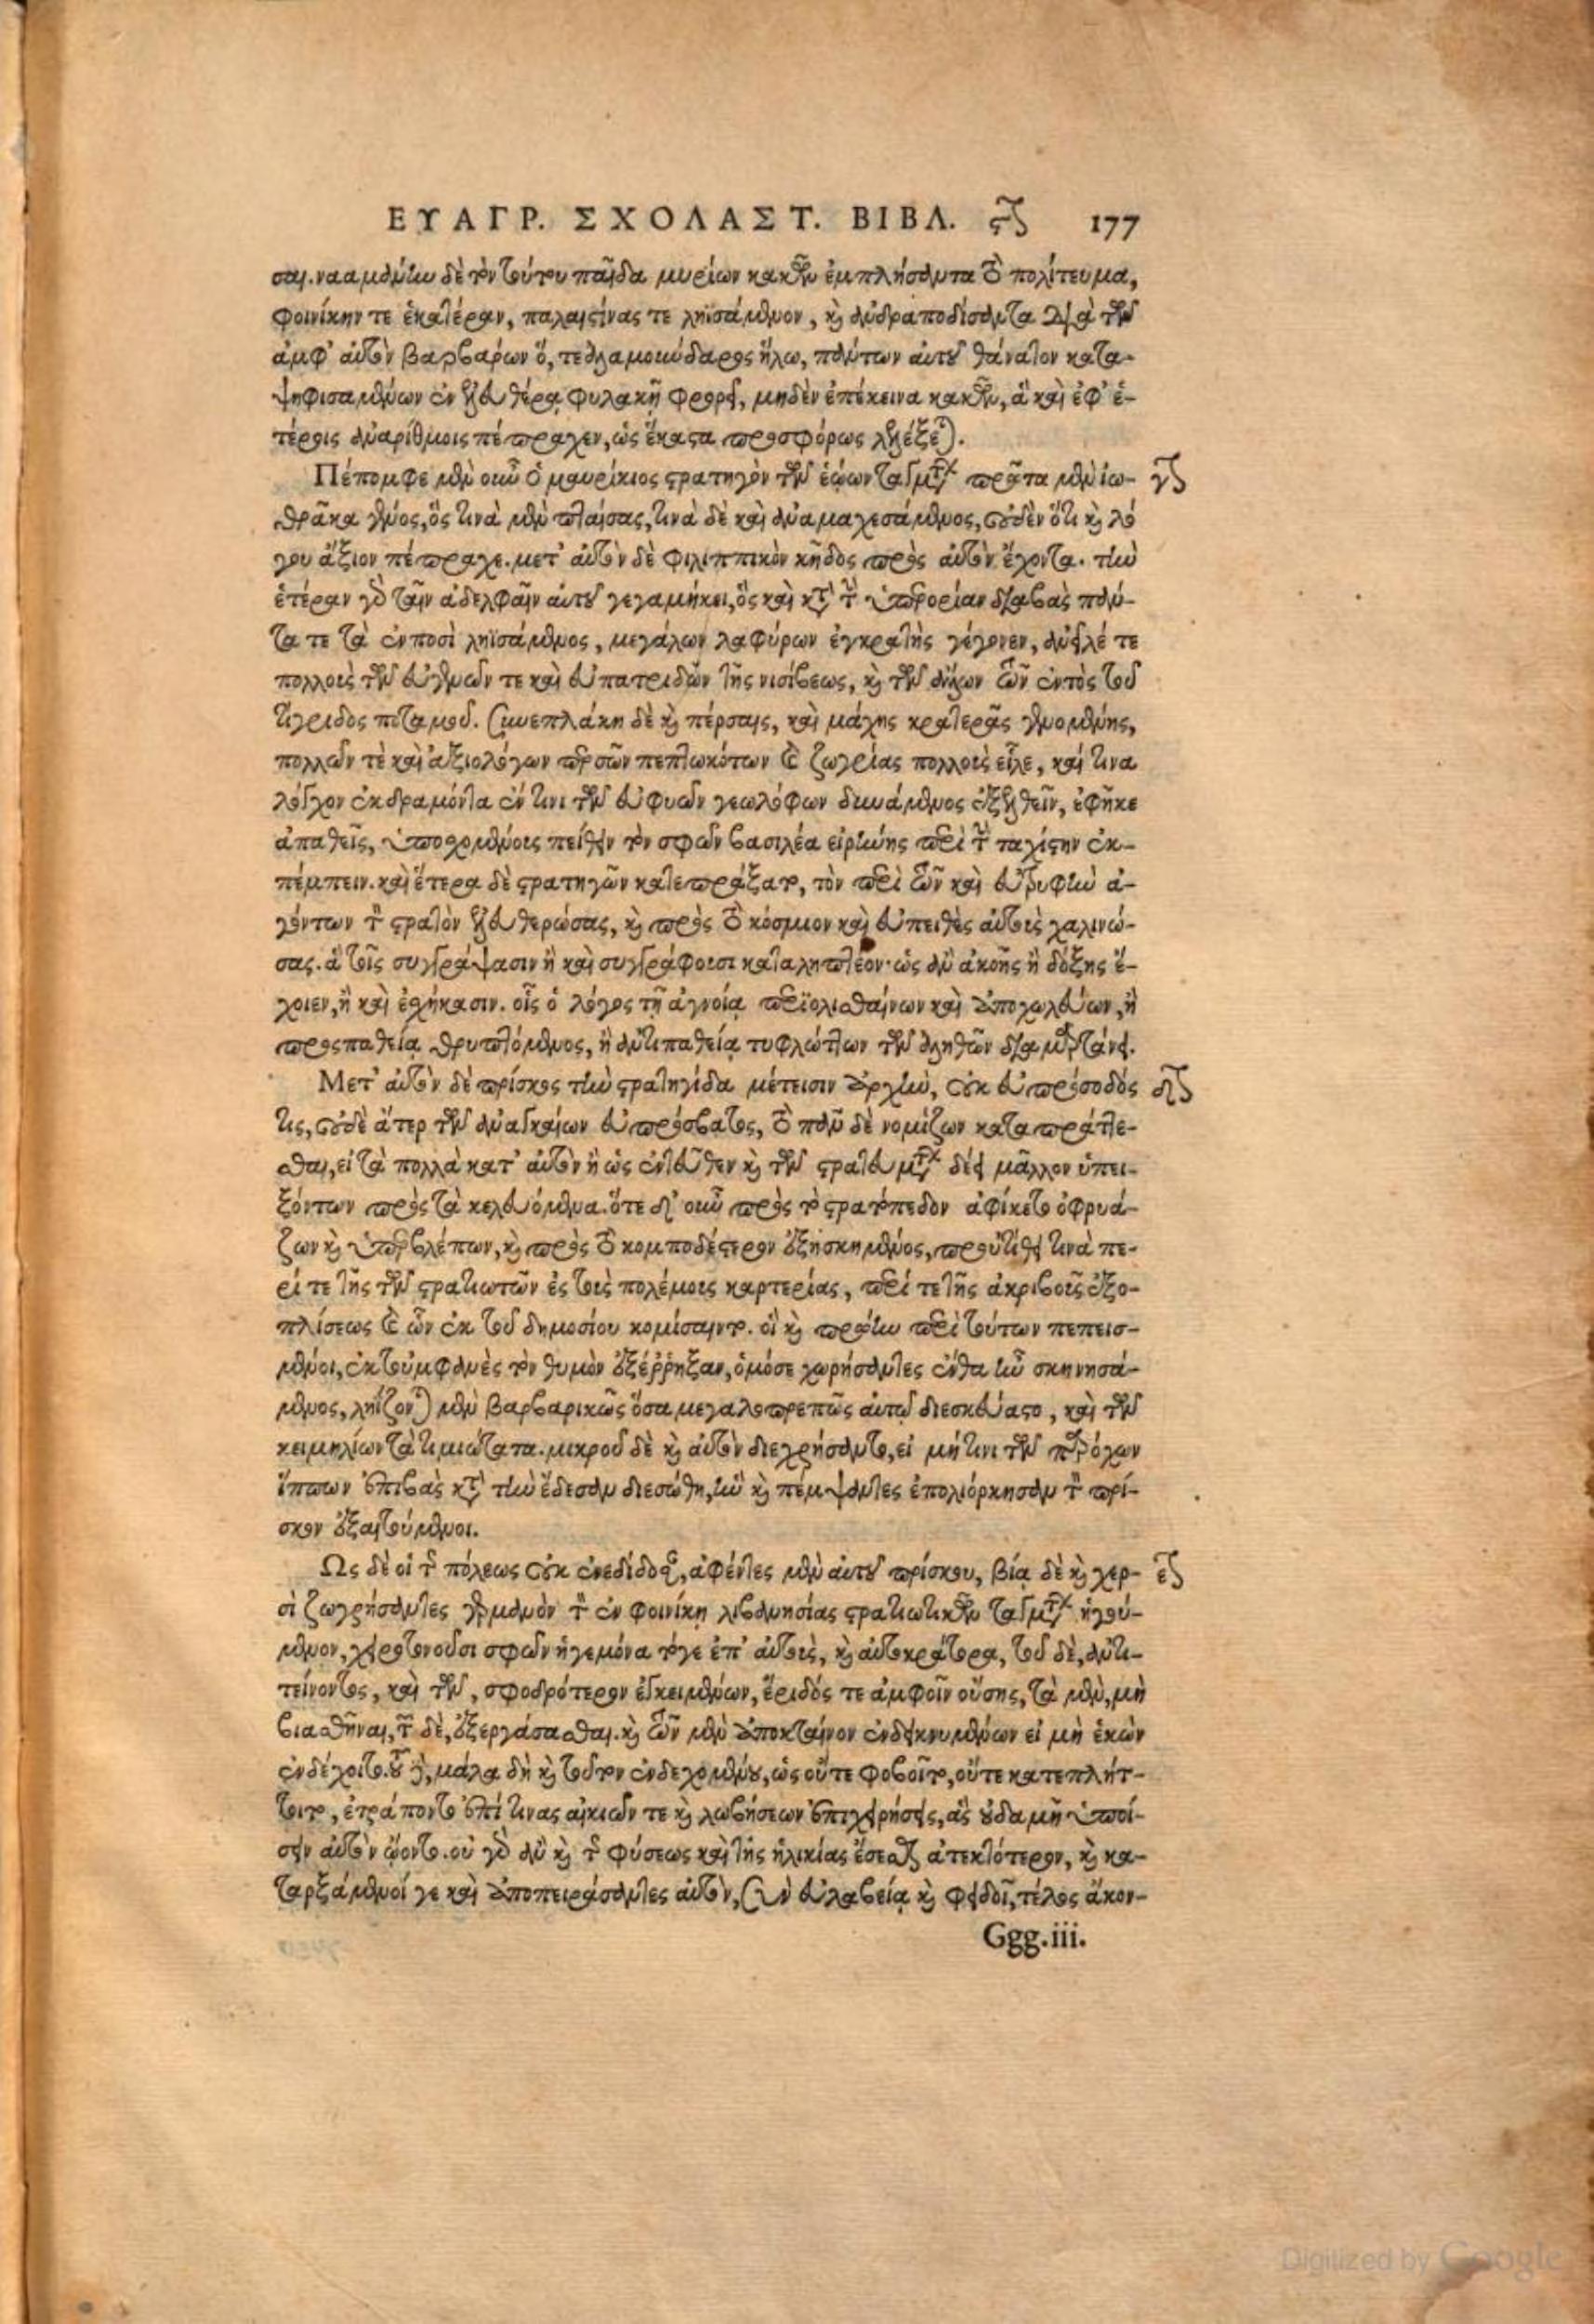 ΕΥΑΓΡ. ΣΧΟΛΑΣΤ. ΒΙΒΛ. ϛον 177
σαι. νααμάνην δὲ τὸν τούτου παῖδα μυρίων κακῶν ἐμπλήσαντα τὸ πολίτευμα,
φοινίκην τε ἑκατέραν, παλαιστίνας τε ληϊσάμενον, καὶ ἀνδραποδίσαντα διὰ τῶν
ἀμφ' αὐτὸν βαρβάρων ὅ, τε ἀλαμουνδαρος ἥλω, πάντων αὐτοῦ θάνατον κατα-
ψηφισαμένων ἐν ἐλευθέρᾳ φυλακῇ φρουρεῖ, μηδὲν ἐπέκεινα κακῶν, ἃ καὶ ἐφ' ἑ-
τέροις ἀναρίθμοις πέπραχεν, ὡς ἕκαστα προσφόρως λελέξεται.
Πέπομφε μὲν οὖν ὁ μαυρίκιος στρατηγὸν τῶν ἑῴων ταγμάτων πρῶτα μὲν ἰω-
θράκα γένος, ὅς τινὰ μὲν πταίσας, τινὰ δὲ καὶ ἀναμαχεσάμενος, οὐδὲν ὅτι καὶ λό
γου ἄξιον πέπραχε. μετ' αὐτὸν δὲ φιλιππικὸν κῆδος πρὸς αὐτὸν ἔχοντα. τὴν
ἑτέραν γὰρ ταῖν ἀδελφαῖν αὐτοῦ γεγαμήκει, ὃς καὶ κατὰ τὴν ὑπερορίαν διαβὰς πάν-
τα τε τὰ ἐν ποσὶ ληϊσάμενος, μεγάλων λαφύρων ἐγκρατὴς γέγονεν, ἀνεῖλέ τε
πολλοὺς τῶν εὐγενῶν τε καὶ εὐπατριδῶν τῆς νισίβεως, καὶ τῶν ἄλλων τῶν ἐντὸς τοῦ
τίγριδος ποταμοῦ. συνεπλάκη δὲ καὶ πέρσαις, καὶ μάχης κρατερᾶς γενομένης,
πολλῶν τὲ καὶ ἀξιολόγων περσῶν πεπτωκότων καὶ ζωγρίας πολλοὺς εἷλε, καί τινα
λόχον ἐκδραμόντα ἔν τινι τῶν εὐφυῶν γεωλόφων δυνάμενος ἐξελθεῖν, ἐφῆκε
ἀπαθεῖς, ὑποσχομένοις πείθειν τὸν σφῶν βασιλέα εἰρήνης περὶ τὴν ταχίστην ἐκ-
πέμπειν. καὶ ἕτερα δὲ στρατηγῶν κατεπράξατο, τὸν περὶ τῶν καὶ εἰς τρυφὴν ἀ-
γόντων τὸν στρατὸν ἐλευθερώσας, καὶ πρὸς τὸ κόσμιον καὶ εὐπειθὲς αὐτοὺς χαλινώ-
σας. ἃ τοῖς συγγράψασιν ἢ καὶ συγγράφουσι καταληπτέον· ὡς ἂν ἀκοῆς ἢ δόξης ἔ-
χοιεν, ἢ καὶ ἐσχήκασιν. οἷς ὁ λόγος τῇ ἀγνοίᾳ περιολισθαίνων καὶ ἀποχωλεύων, ἢ
προσπαθείᾳ θρυπτόμενος, ἢ ἀντιπαθείᾳ τυφλώττων τῶν ἀληθῶν διαμαρτάνει.
Μετ' αὐτὸν δὲ πρίσκος τὴν στρατηγίδα μέτεισιν ἀρχὴν, οὐκ εὐπρόσοδός
τις, οὐδὲ ἄτερ τῶν ἀναγκαίων εὐπρόσβατος, τὸ πᾶν δὲ νομίζων καταπράττε-
σθαι, εἰ τὰ πολλὰ κατ' αὐτὸν ἢ ὡς ἐντεῦθεν καὶ τῶν στρατευμάτων δέει μᾶλλον ὑπει-
ξόντων πρὸς τὰ κελευόμενα. ὅτε δ' οὖν πρὸς τὸ στρατόπεδον ἀφίκετο ὀφρυά-
ζων καὶ ὑπερβλέπων, καὶ πρὸς τὸ κομποδέστερον ἐξησκημένος, προὐτίθει τινὰ πε-
ρί τε τῆς τῶν στρατιωτῶν ἐς τοὺς πολέμους καρτερίας, περί τε τῆς ἀκριβοῦς ἐξο-
πλίσεως καὶ ὧν ἐκ τοῦ δημοσίου κομίσαιντο. οἳ καὶ πρώην περὶ τούτων πεπεισ-
μένοι, ἐκ τοὐμφανὲς τὸν θυμὸν ἐξέῤῥηξαν, ὁμόσε χωρήσαντες ἔνθα ἦν σκηνησά-
μενος, ληΐζονται μὲν βαρβαρικῶς ὅσα μεγαλοπρεπῶς αὐτῷ διεσκεύαστο, καὶ τῶν
κειμηλίων τὰ τιμιώτατα. μικροῦ δὲ καὶ αὐτὸν διεχρήσαντο, εἰ μή τινι τῶν παρόχων
ἵππων ἐπιβὰς κατὰ τὴν ἔδεσαν διεσώθη, ἣν καὶ πέμψαντες ἐπολιόρκησαν τὸν πρί-
σκον ἐξαιτούμενοι.
Ὡς δὲ οἱ τῆς πόλεως οὐκ ἐνεδίδοσαν, ἀφέντες μὲν αὐτοῦ πρίσκου, βίᾳ δὲ καὶ χερ-
σὶ ζωγρήσαντες γερμανὸν τὸν ἐν φοινίκῃ λιβανησίας στρατιωτικῶν ταγμάτων ἡγού-
μενον, χειροτονοῦσι σφῶν ἡγεμόνα τόγε ἐπ' αὐτοῖς, καὶ αὐτοκράτορα, τοῦ δὲ, ἀντι-
τείνοντος, καὶ τῶν, σφοδρότερον ἐγκειμένων, ἔριδός τε ἀμφοῖν οὔσης, τὰ μὲν, μὴ
βιασθῆναι, τῶν δὲ, ἐξεργάσασθαι. καὶ τῶν μὲν ἀποκταίνον ἐνδεικνυμένων εἰ μὴ ἑκὼν
ἐνδέχοιτο. τοῦ δὲ, μάλα δὴ καὶ τοῦτον ἐνδεχομένου, ὡς οὔτε φοβοῖτο, οὔτε κατεπλήτ-
τοιτο, ἐτράποντο ἐπί τινας αἰκιῶν τε καὶ λωβήσεων ἐπιχειρήσεις, ἃς οὐδαμῆ ὑποί-
σειν αὐτὸν ᾤοντο. οὐ γὰρ ἂν καὶ τῆς φύσεως καὶ τῆς ἡλικίας ἔσεσθαι ἀτεκτότερον, καὶ κα-
ταρξάμενοί γε καὶ ἀποπειράσαντες αὐτὸν, σὺν εὐλαβείᾳ καὶ φειδοῖ, τέλος ἄκον-
Ggg.iii.
γον
δον
εον
Digitized by Google